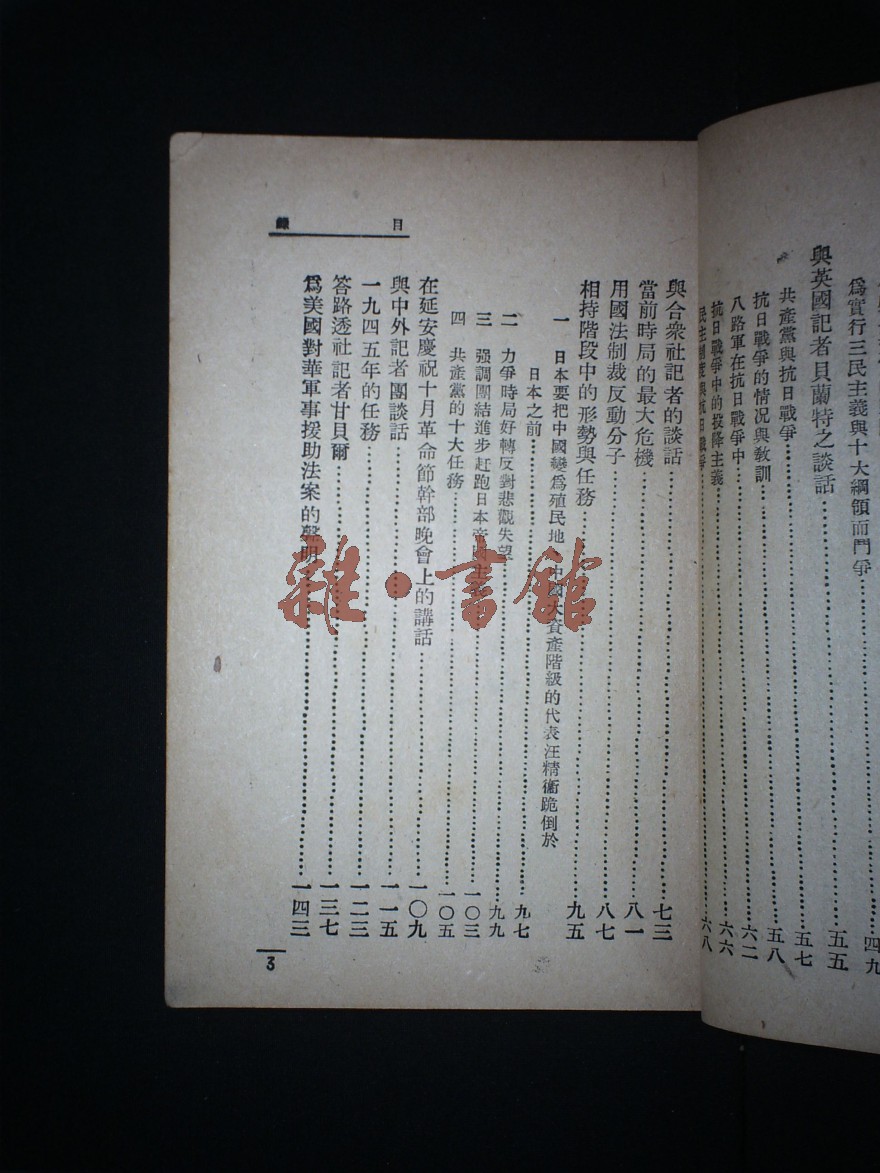 爲實行三民主義與十大綱領而鬥爭……四九
與英國記者貝蘭特之談話……五五
共產黨與抗日戰爭……五七
抗日戰爭的情况與敎訓……五八
八路軍在抗日戰爭中……六二
抗日戰爭中的投降主義……六六
民主制度與抗日戰爭……六八
目錄
與合衆社記者的談話……七三
當前時局的最大危機……八一
用國法制裁反動分子……八七
相持階段中的形勢與任務……九五
一 日本要把中國變爲殖民地、中國大資產階級的代表汪精衞跪倒於
日本之前……九七
二 力爭時局好轉反對悲觀失望……九九
三 强調團結進步赶跑日本帝國主義……一〇三
四 共產黨的十大任務……一〇五
在延安慶祝十月革命節幹部晚會上的講話……一〇九
與中外記者團談話……一一五
一九四五年的任務……一二三
答路透社記者甘貝爾……一三七
爲美國對華軍事援助法案的聲明……一四三
3
雜·書館